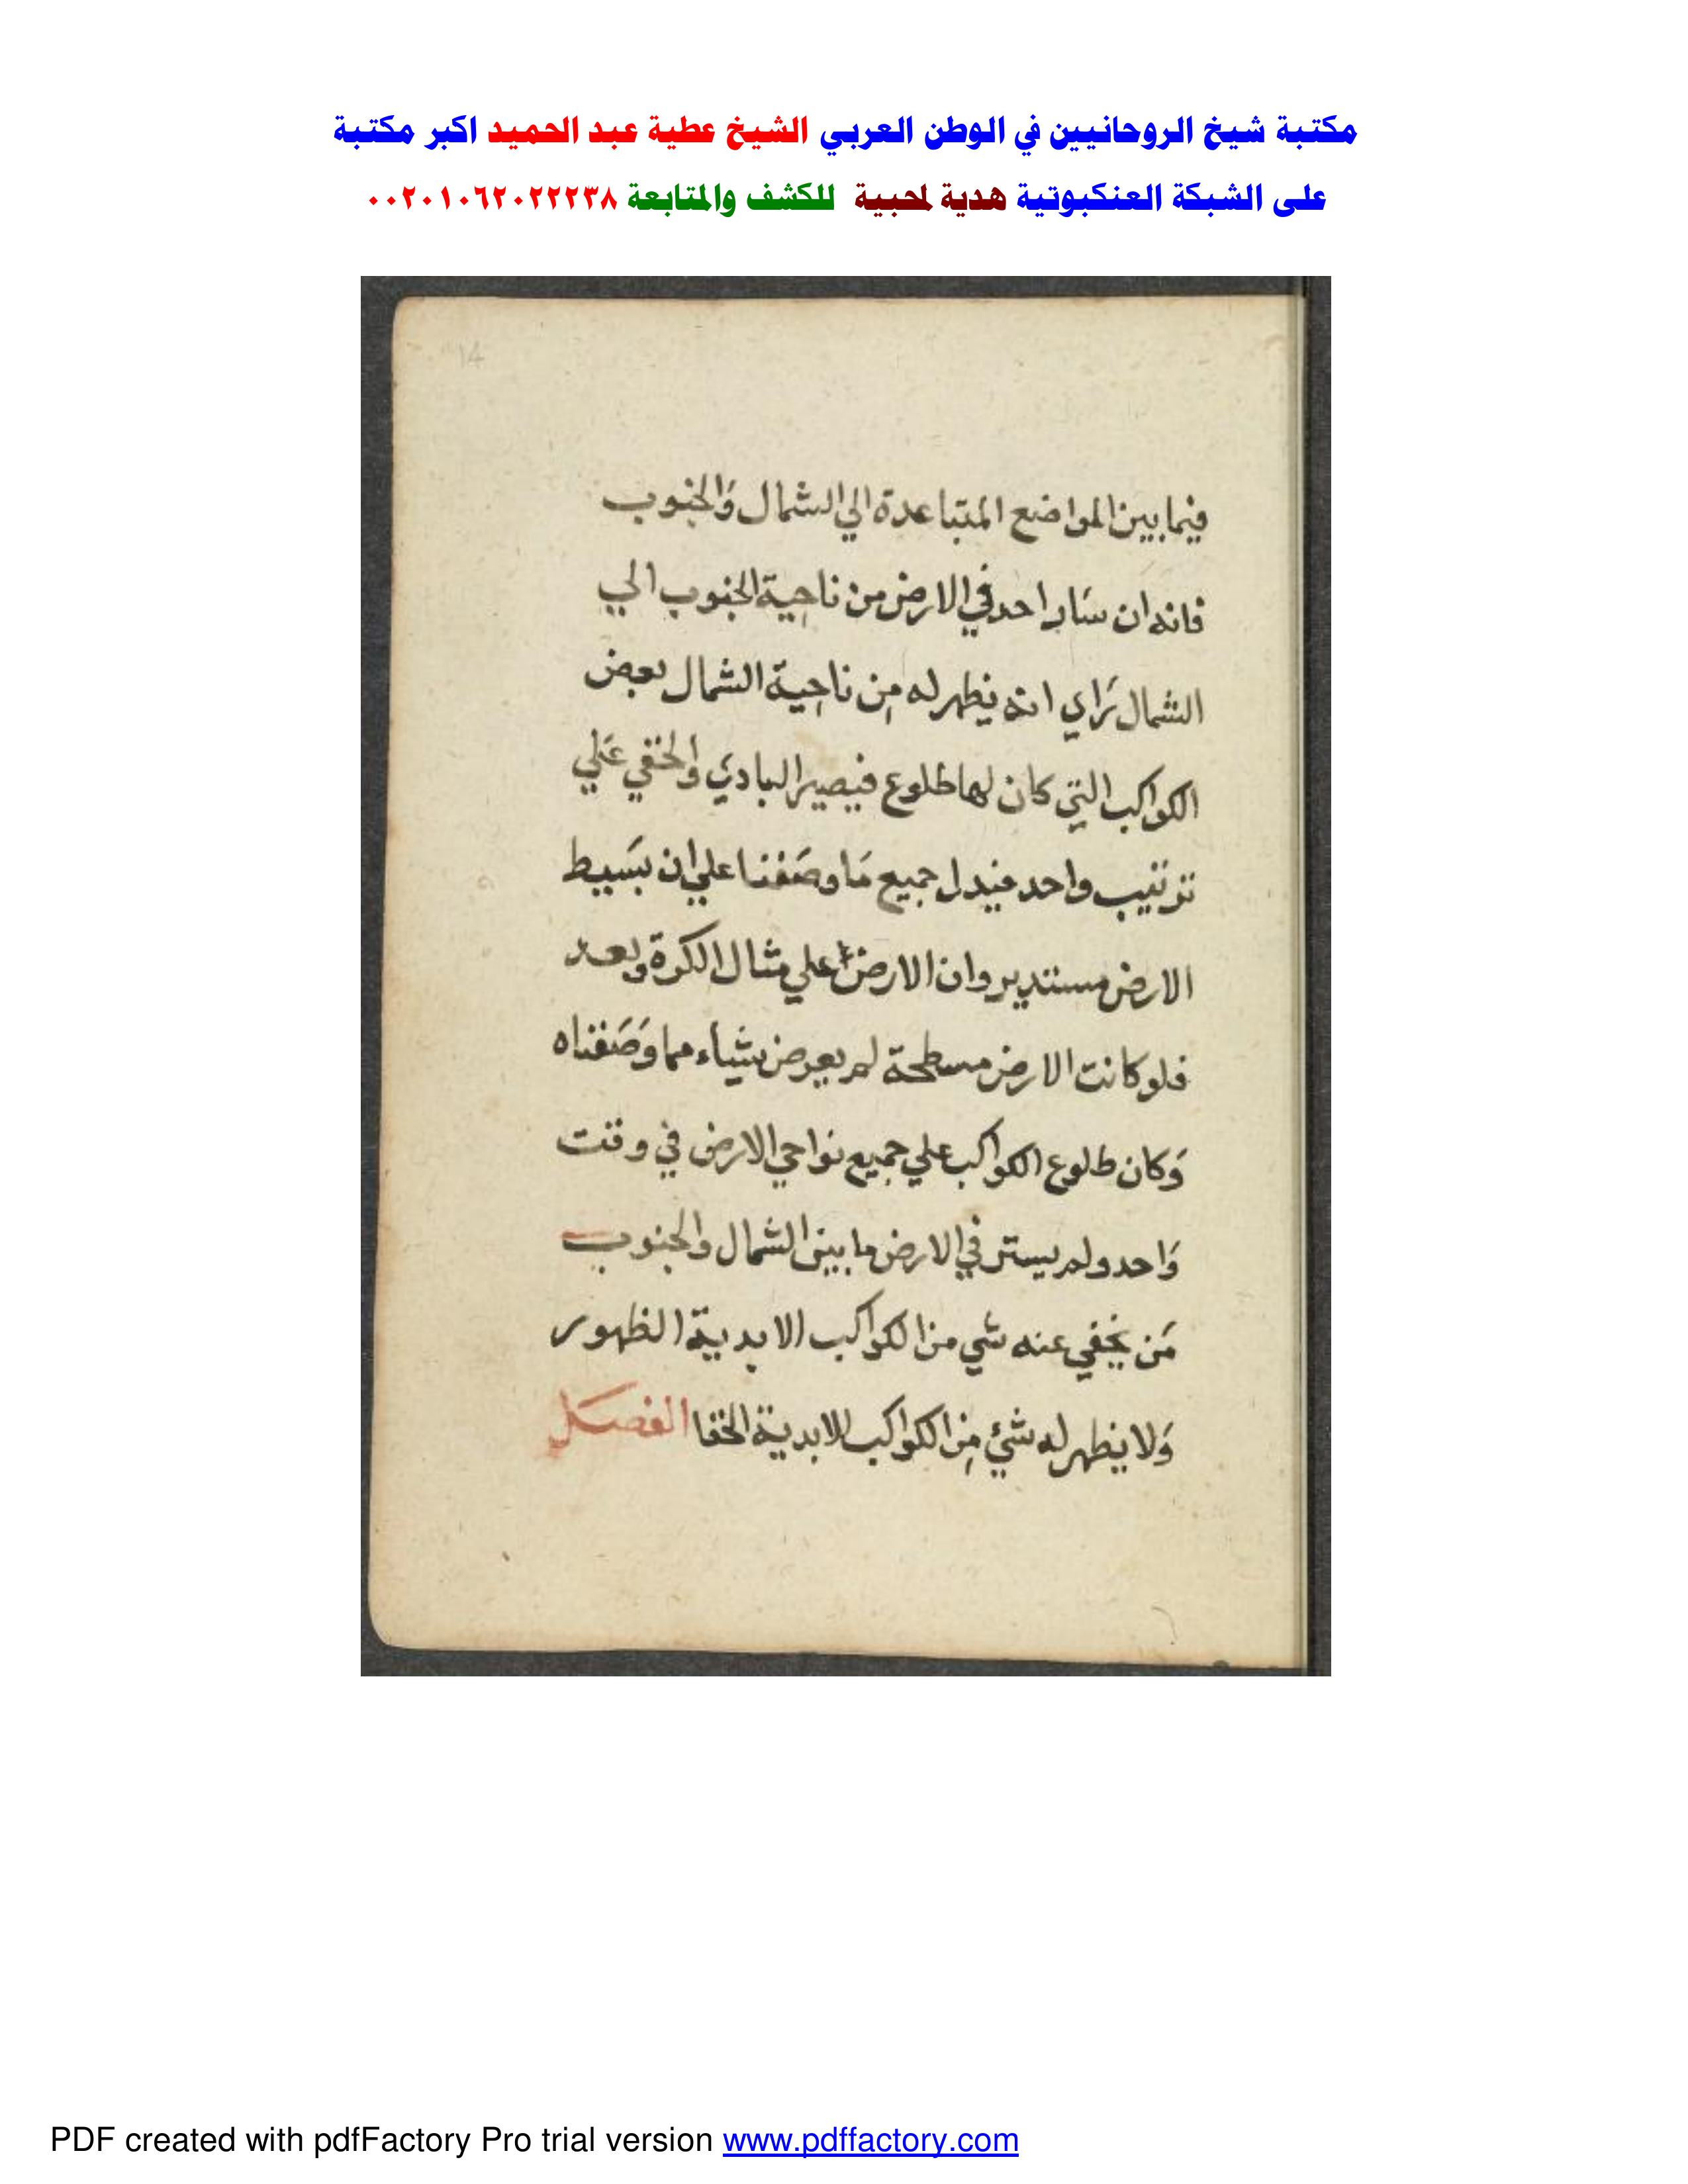 مكتبة شيخ الروحانيين في الوطن العربي الشيخ عطية عبد الحميد اكبر مكتبة
على الشبكة العنكبوتية هدية لمحبية للكشف والمتابعة ٠٠٢٠١٠٦٢٠٢٢٢٣٨
14
فيما بين المواضع المتباعدة الي الشمال وَالجنوب
فانه ان سَار احد في الارض من ناحية الجنوب الي
الشمال رَاي انه يظهر له مِن ناحِية الشمال بعض
الكواكب التي كان لها طلوع فيصير البادي والخفي عَلي
ترتيب واحد فيدل جميع مَا وصَفنا علي ان بسَيط
الارض مستدير وان الارض علي مثال الكرة وبعد
فلو كانت الارض مسطحة لم يعرض شياء مما وَصَفناه
وَكان طلوع الكواكب علي جميع نواحي الارض في وقت
وَاحد ولم يستر في الارض ما بين الشمال والجنوب
مَن يخفي عنه شي من الكواكب الابدية الظهور
وَلا يظهر له شئ مِن الكواكب الابدية الخفا الفصَل
PDF created with pdfFactory Pro trial version www.pdffactory.com